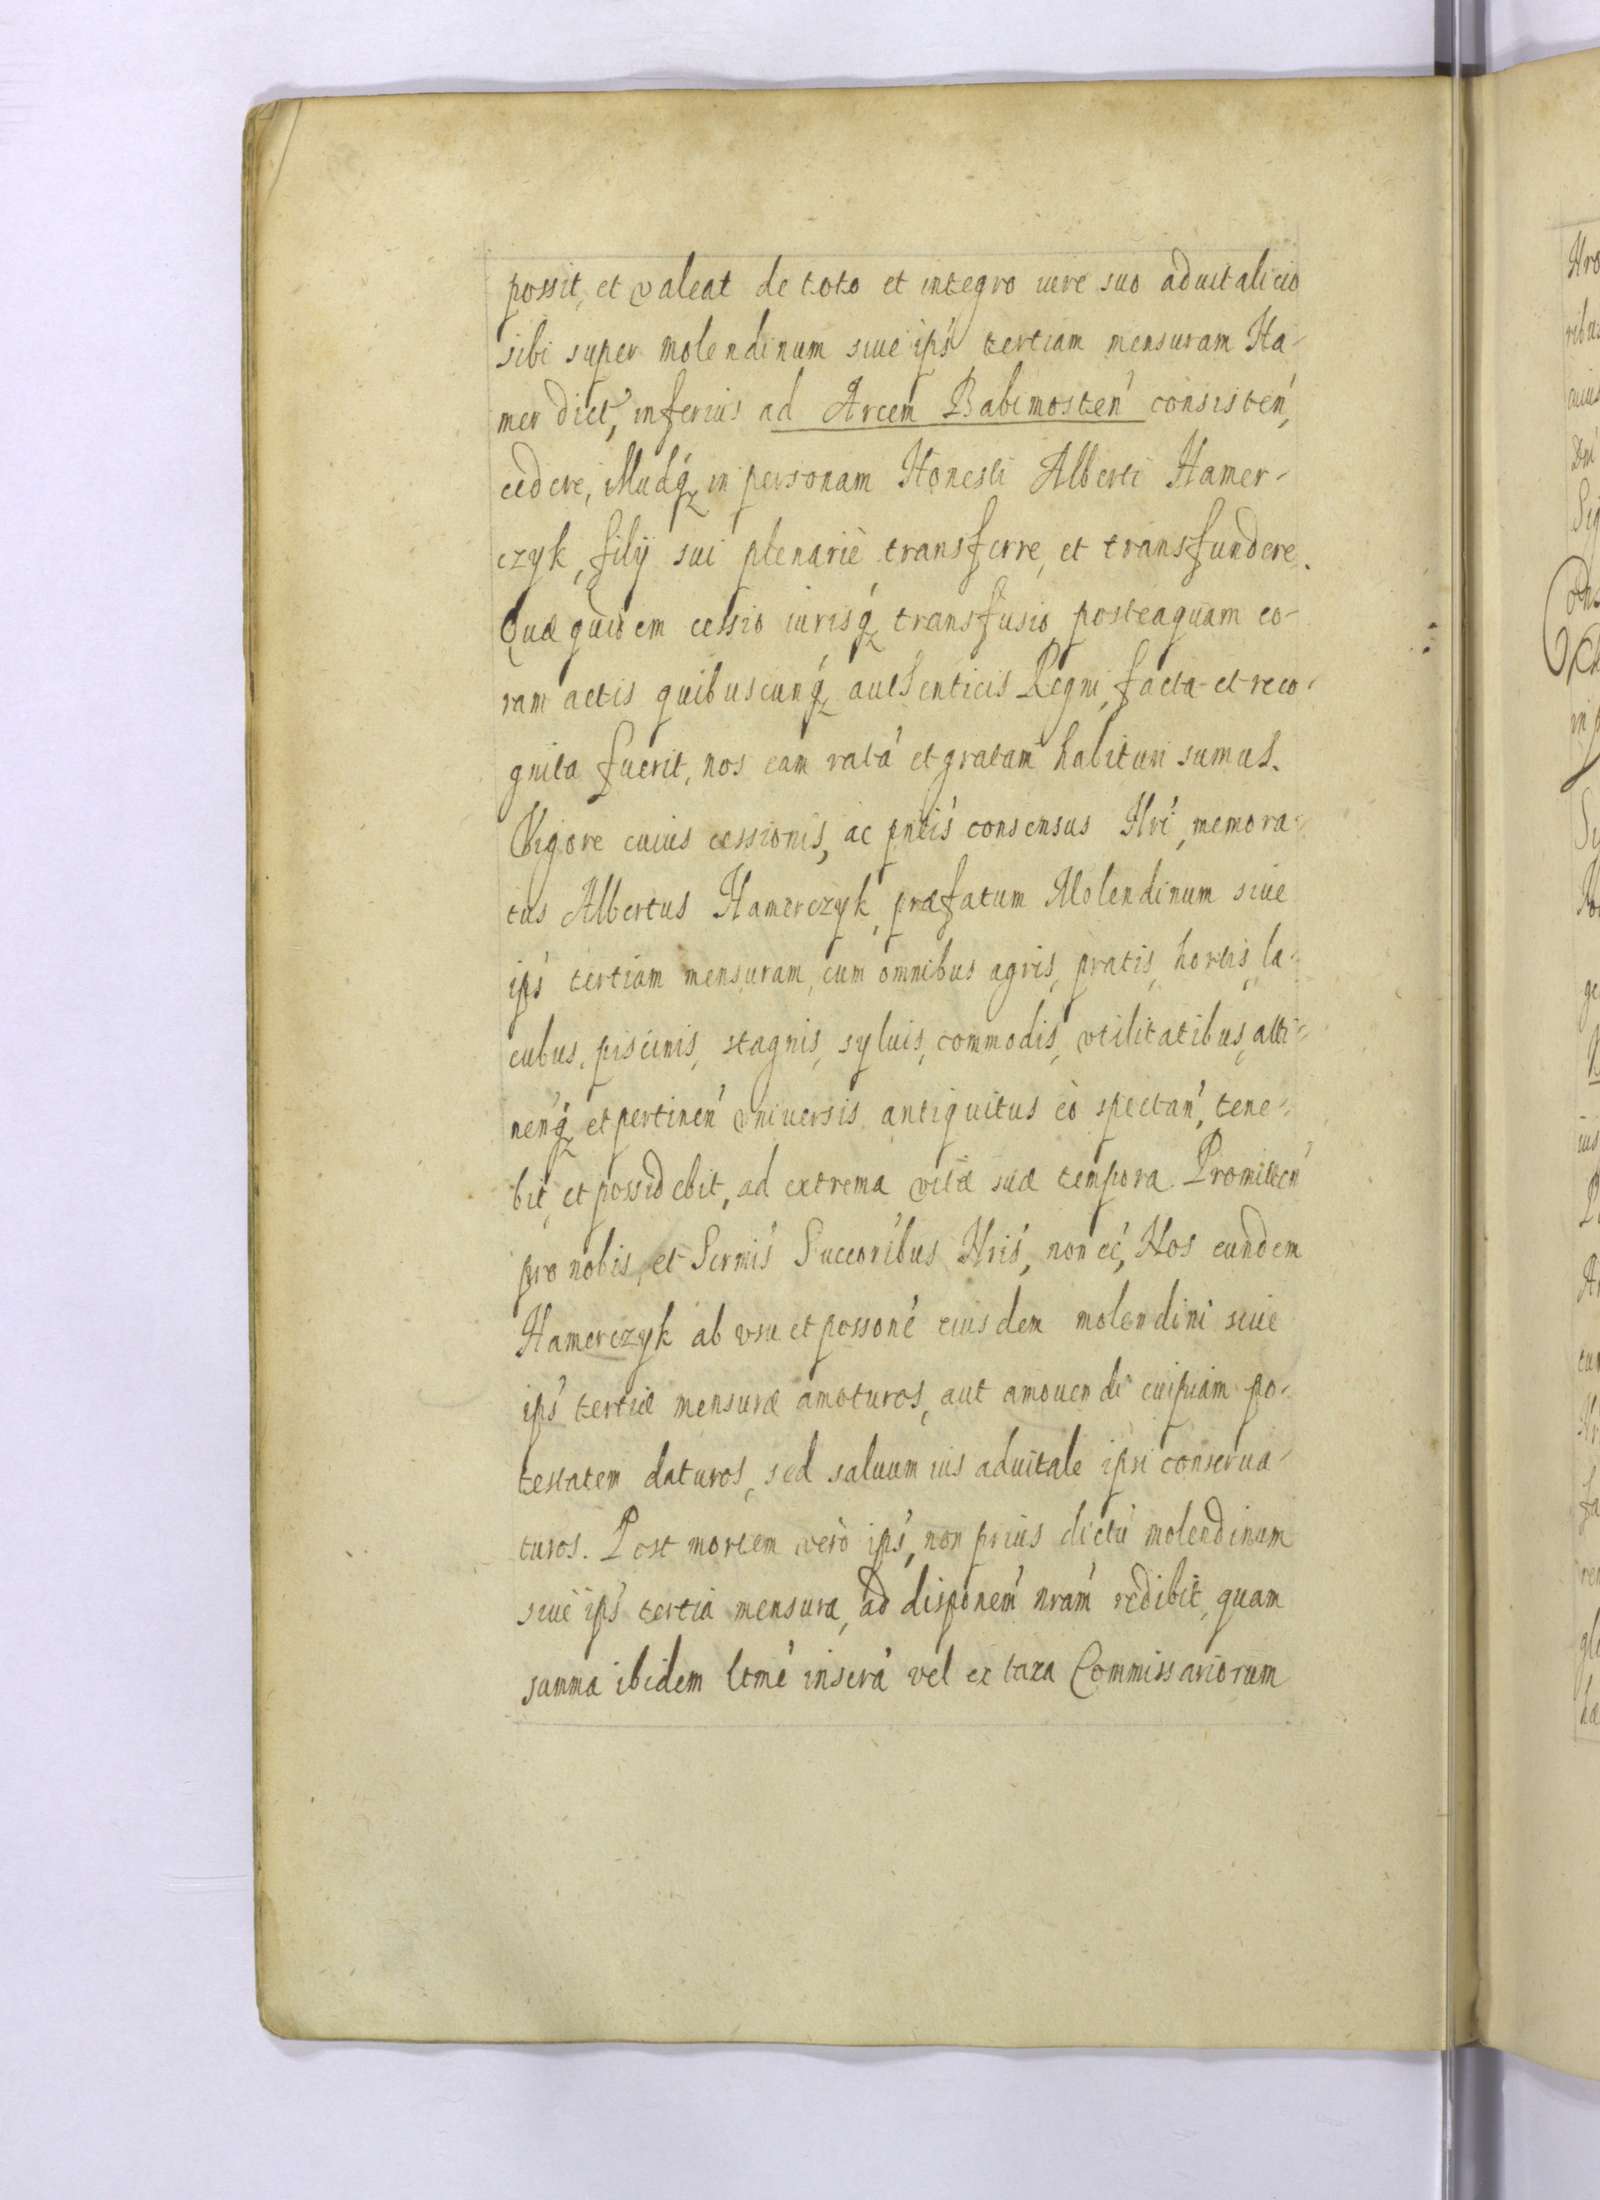 possit, et valeat de toto et integro iure suo aduitalicio
sibi super molendinum siue ips' tertiam mensuram Ha-
mer dict', inferius ad Arcem Babimosten' consisten',
cedere, illudq' in personam Honesti Alberti Hamer-
czyk, filij sui plenariè transferre, et transfundere.
Quæ quidem cessio iurisq' transfusio posteaquam co-
ram actis quibuscunq' authenticis Regni, facta et reco-
gnita fuerit, nos eam ratā et gratam habituri sumus.
Vigore cuius cessionis, ac pntis' consensus Nri', memora-
tus Albertus Hamerczyk, præfatum Molendinum siue
ips' tertiam mensuram, cum omnibus agris, pratis, hortis, la-
cubus, piscinis, stagnis, syluis, commodis, vtilitatibus, atti-
nen'q' et pertinen' vniuersis antiquitus eò spectan', tene-
bit, et possidebit, ad extrema vitæ suæ tempora. Promitten'
pro nobis, et Sermis' Succoribus' Nris', non eē', Nos eundem
Hamerczyk ab vsu et possone' eiusdem molendini siue
ips' tertiæ mensuræ amoturos, aut amouendi cuipiam po-
testatem daturos, sed saluum ius aduitale ipsi conserua-
turos. Post mortem verò ips', non prius dictū molendinum
siue ips' tertia mensura, ad disponem' nram' redibit, quam
summa ibidem ltme' inserā' vel ex taxa Commissariorum